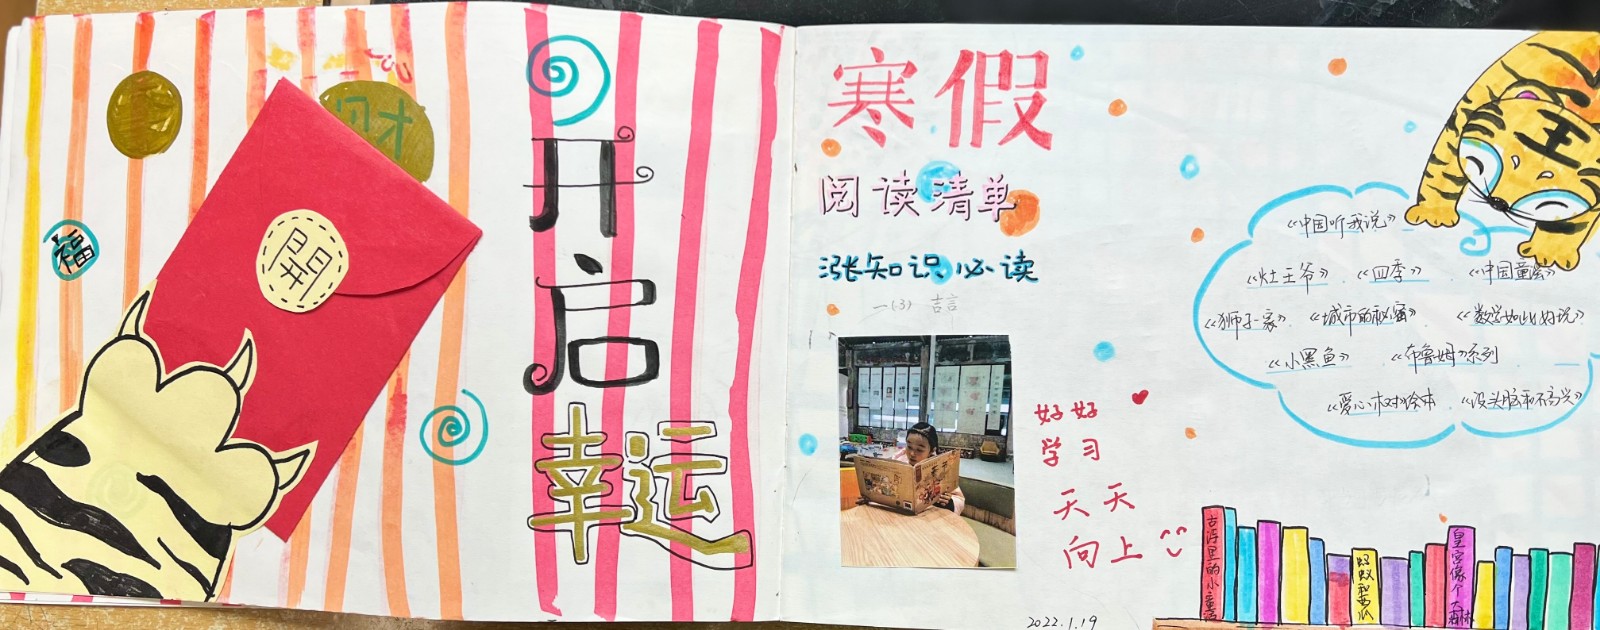 财
開
福
开启
幸运
寒假
阅读清单
涨知识必读
一(3) 吉言
好好
学习
天天
向上
2022.1.19
《中国听我说》
《灶王爷》 《四季》 《中国童话》
《狮子一家》 《城市的秘密》 《数学如此好玩》
《小黑鱼》 《布鲁姆》系列
《爱心树》绘本 《没头脑和不高兴》
王
古诗里的小童话
蚂蚁和西瓜
皇宫像个大森林